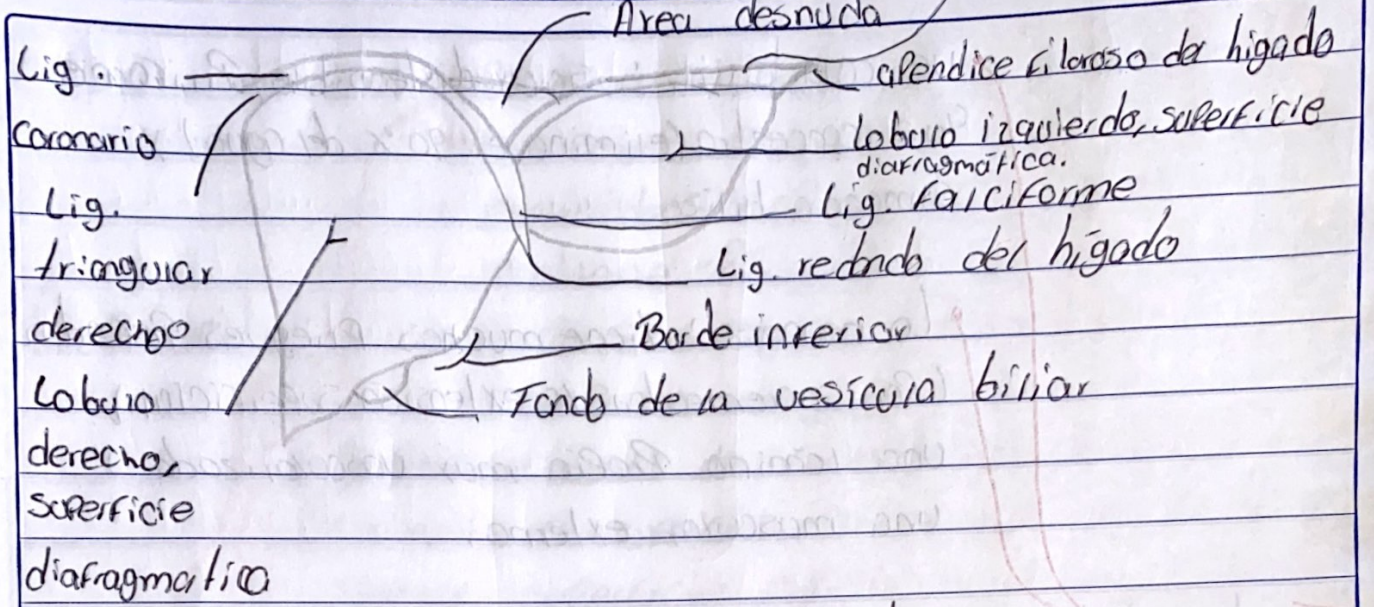 Area desnuda
Lig.
coronario
Lig.
triangular
derecho
Lobulo
derecho,
superficie
diafragmatica
apendice filoroso del higado
Lobulo izquierdo, superficie
diafragmática.
Lig. Falciforme
Lig. redondo del hígado
Borde inferior
Fondo de la vesícula biliar